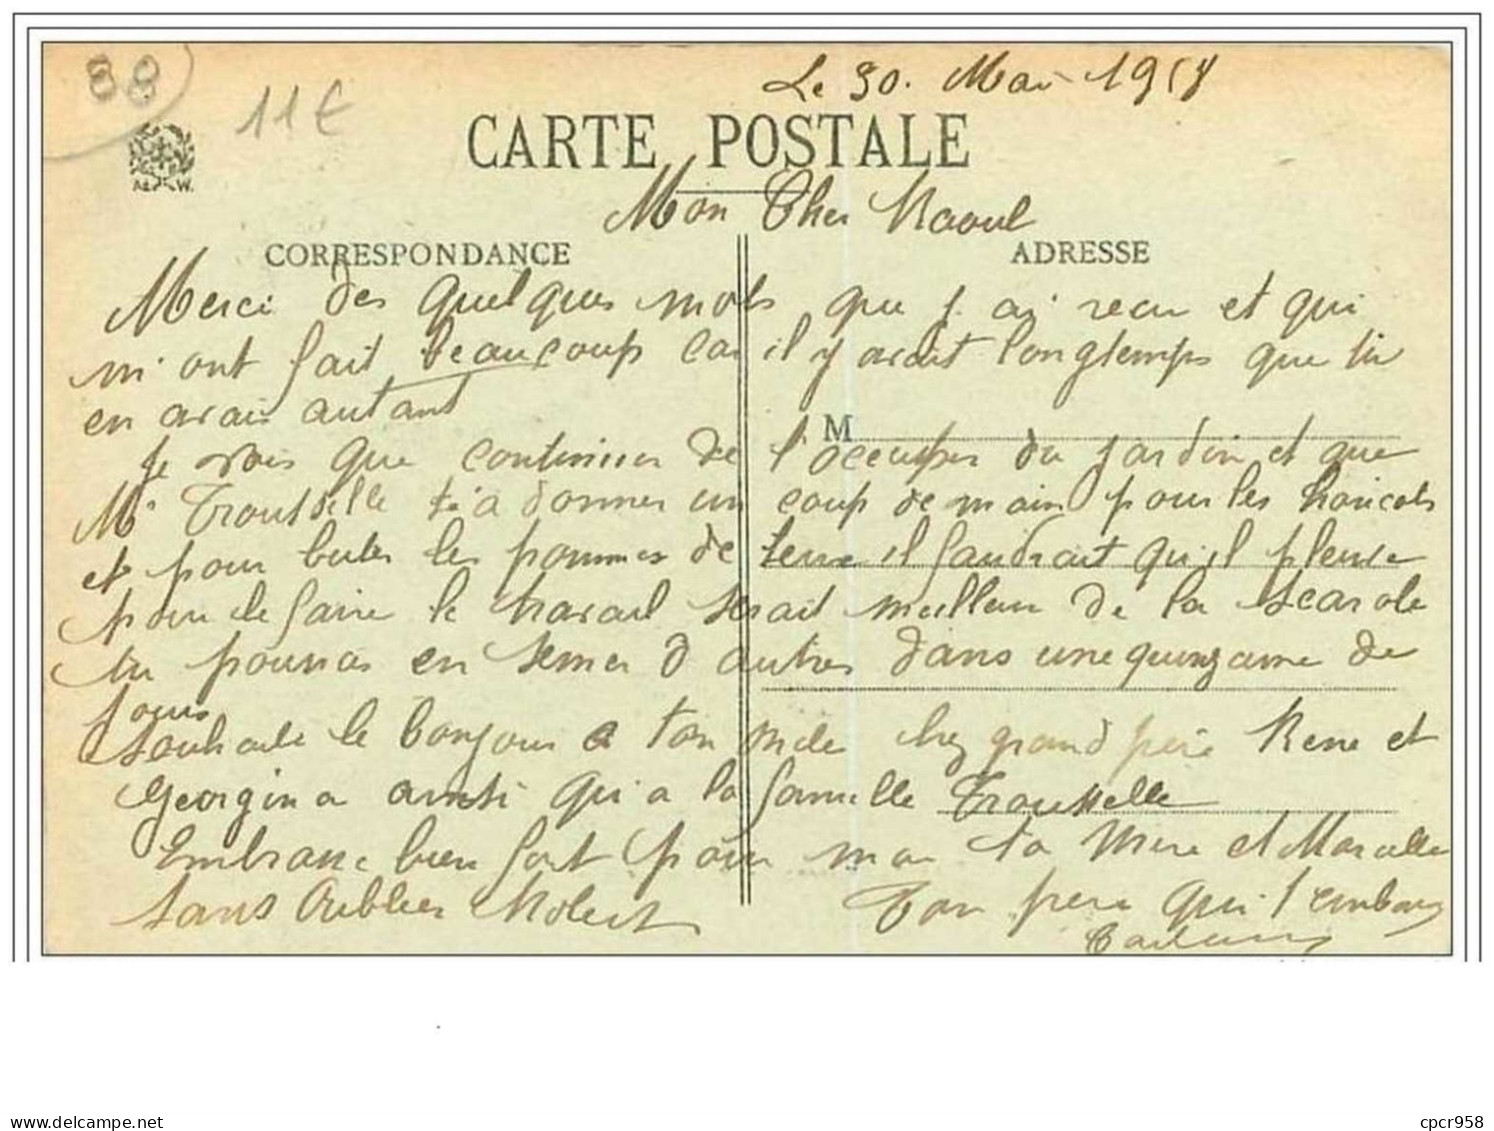 88
11€
Le 30. Mai 1918
CARTE POSTALE
Mon Cher Raoul
CORRESPONDANCE
ADRESSE
Merci des quelques mots que j'ai recu et qui
m'ont fait beaucoup car il y avait longtemps que tu
en avais autant
M
Je vois que continuer de t'occuper du jardin et que
Mr Trousselle t'a donner un coup de main pour les haricots
et pour buter les pommes de terre il faudrait qu'il pleuve
pour le faire le travail serait meilleur de la scarole
tu pourras en semer d'autres dans une quinzaine de
jours
souhaite le bonjour a ton chez grand père Rene et
Georgina ainsi qu'a la famille Trousselle
Embrasse bien fort pour moi ta Mere et Marcelle
sans oublier Robert
Ton pere qui t'embras
cpcr958